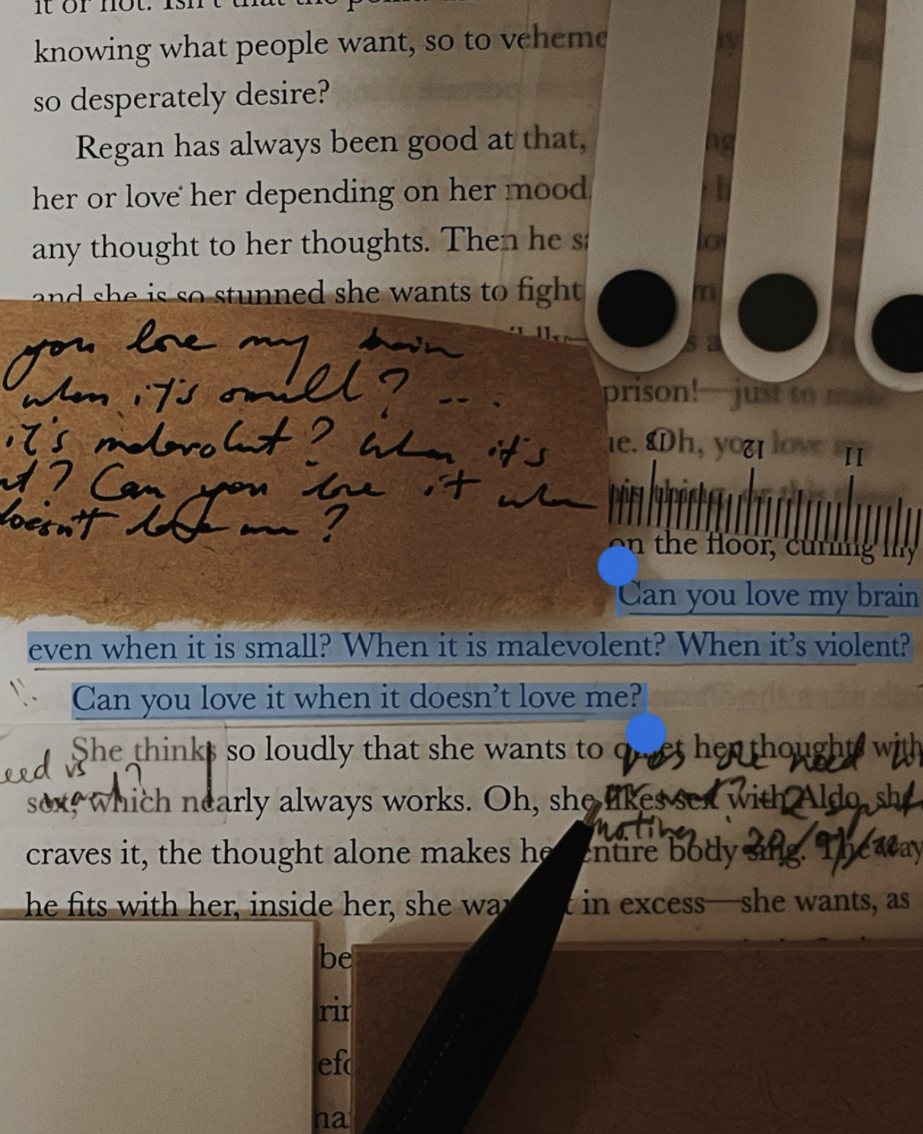 it or not. Isn't that the
knowing what people want, so to vehem
so desperately desire?
Regan has always been good at that,
her or love her depending on her mood.
any thought to her thoughts. Then he s
and she is so stunned she wants to fight
you love my brain
when it's small? ...
it's malevolent? When it's
nt? Can you love it when
doesn't love me?
prison!—just to make
ne. Oh, you love my
13 12 11
on the floor, curling my
Can you love my brain
even when it is small? When it is malevolent? When it's violent?
Can you love it when it doesn't love me?
She thinks so loudly that she wants to quiet her thoughts with
eed vs
sex, which nearly always works. Oh, she likes sex with Aldo, she
craves it, the thought alone makes her entire body sing. The way
he fits with her, inside her, she wa t in excess—she wants, as
be
rin
efo
na